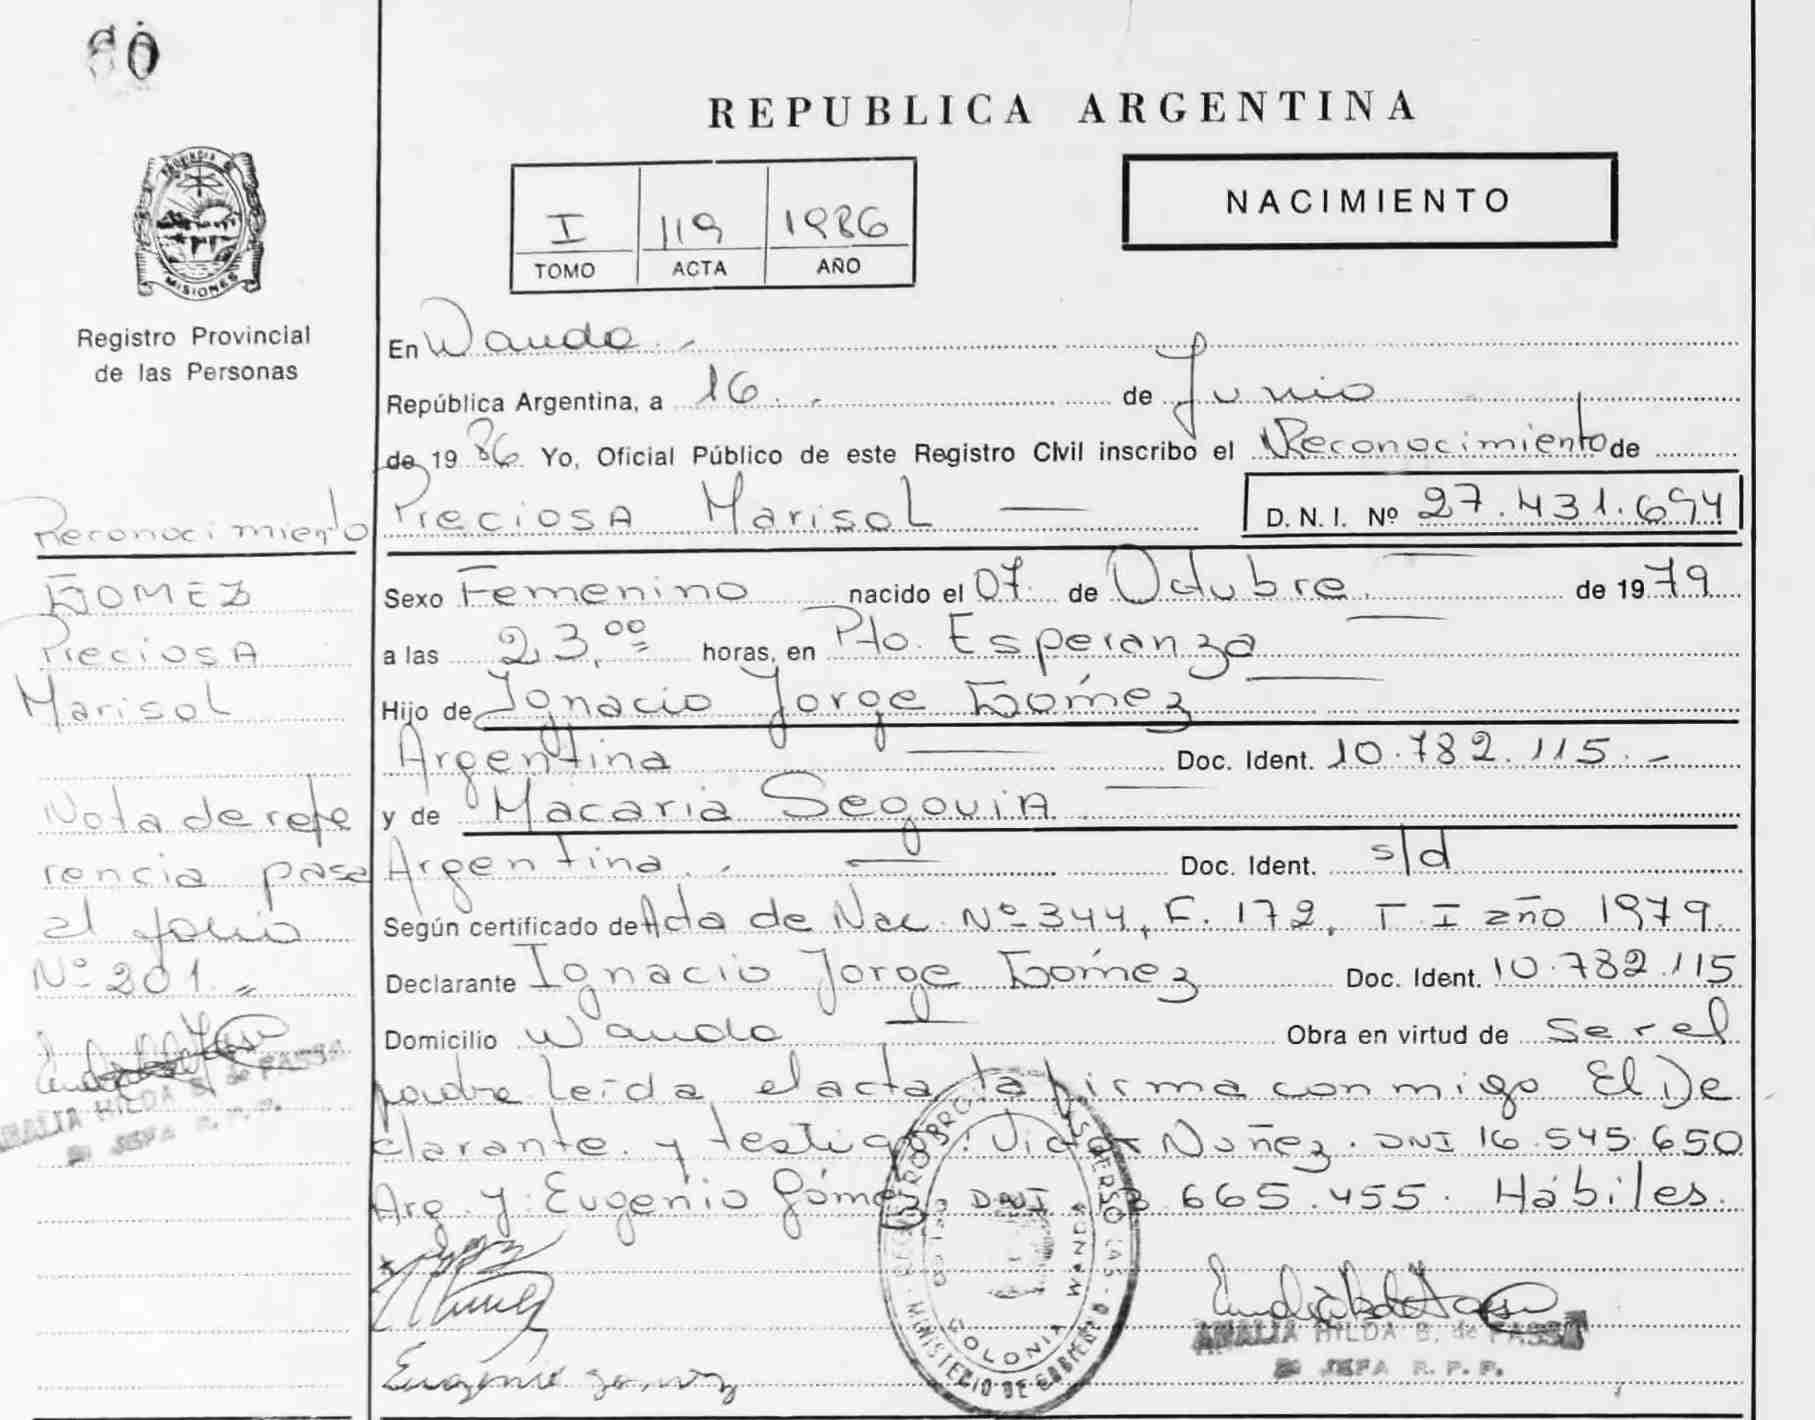 60
REPUBLICA ARGENTINA
NACIMIENTO
I 119 1986
TOMO ACTA AÑO
PROVINCIA DE
MISIONES
Registro Provincial
de las Personas
En Wanda.-
República Argentina, a 16.- de Junio
de 1986 Yo, Oficial Público de este Registro Civil inscribo el Reconocimiento de
Preciosa Marisol — D.N.I. Nº 27.431.694
Sexo Femenino nacido el 07 de Octubre. de 1979
a las 23,00 horas, en Pto. Esperanza
Hijo de Ignacio Jorge Gómez
Argentina — Doc. Ident. 10.782.115.-
y de Macaria Segovia
Argentina.- Doc. Ident. s/d
Según certificado de Acta de Nac. Nº 344, F. 172, T. I año 1979.
Declarante Ignacio Jorge Gómez Doc. Ident. 10.782.115
Domicilio Wanda — Obra en virtud de Ser el
padre leída el acta la firma conmigo El De
clarante y testigos: Victor Nuñez. DNI 16.545.650
Arg. y Eugenio Gómez DNI 665.455. Hábiles.
Eugenio Gomez
AMALIA HILDA B. de PASSA
JEFA R. P. P.
MINISTERIO DE GOBIERNO
COLONIA WANDA
Reconocimiento
GOMEZ
Preciosa
Marisol
Nota de refe
rencia pasa
al folio
Nº 201.=
AMALIA HILDA B. de PASSA
JEFA R. P. P.